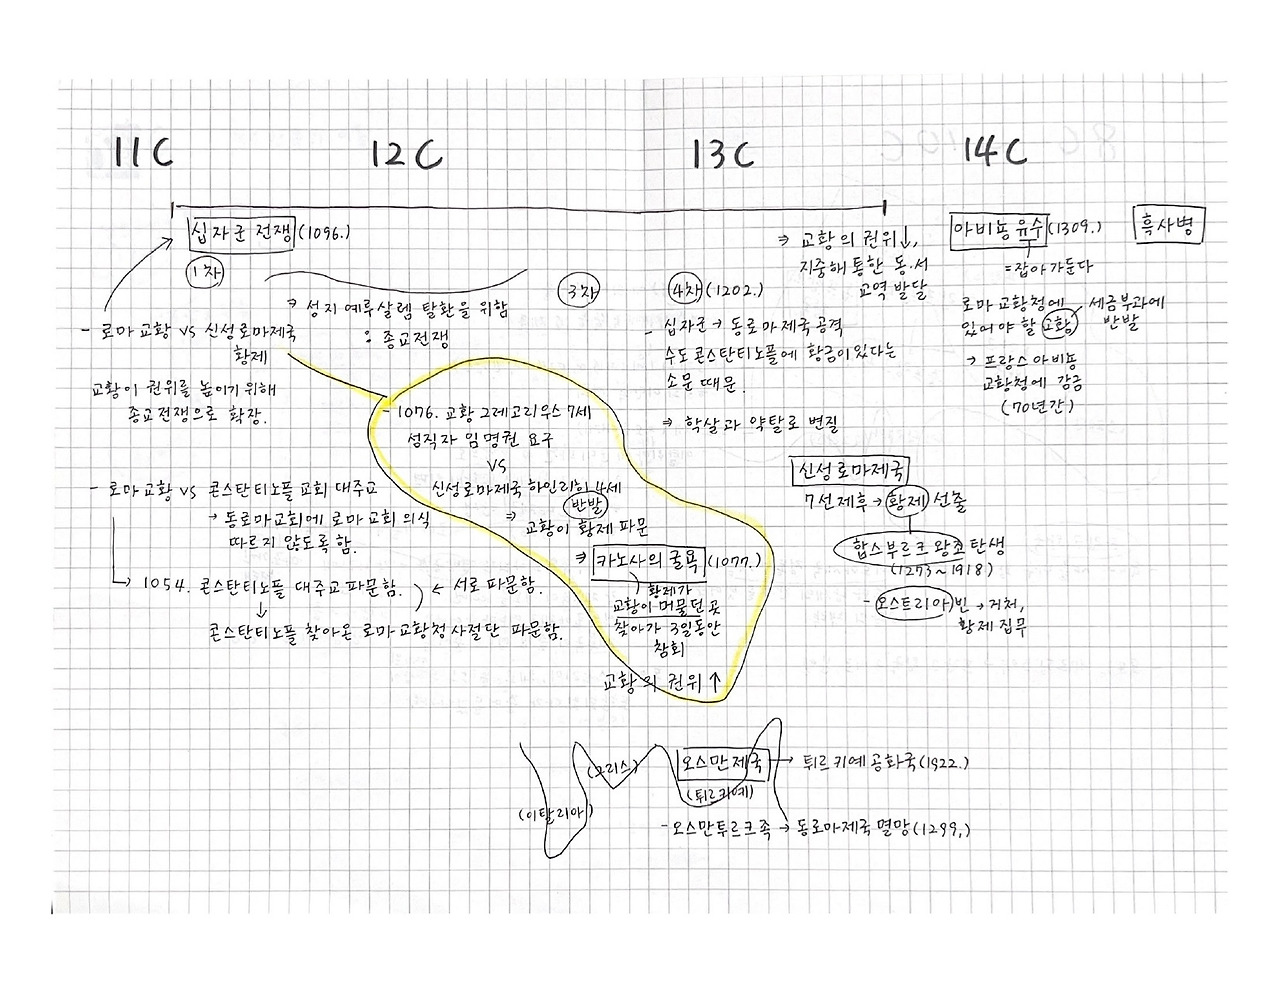 11C
12C
13C
14C
십자군 전쟁 (1096.)
1차
⇒ 성지 예루살렘 탈환을 위함
: 종교전쟁
3차
4차 (1202.)
- 십자군 → 동로마제국 공격
수도 콘스탄티노플에 황금이 있다는
소문 때문.
⇒ 학살과 약탈로 변질
⇒ 교황의 권위↓,
지중해 통한 동·서
교역 발달
아비뇽 유수 (1309.)
=잡아가둔다
로마 교황청에
있어야 할 교황
세금부과에
반발
→ 프랑스 아비뇽
교황청에 감금
(70년간)
흑사병
- 로마 교황 VS 신성로마제국
황제
교황이 권위를 높이기 위해
종교전쟁으로 확장.
- 1076. 교황 그레고리우스 7세
성직자 임명권 요구
VS
신성로마제국 하인리히 4세
반발
⇒ 교황이 황제 파문
⇒ 카노사의 굴욕 (1077.)
황제가
교황이 머물던 곳
찾아가 3일동안
참회
교황의 권위 ↑
- 로마 교황 VS 콘스탄티노플 교회 대주교
→ 동로마교회에 로마 교회 의식
따르지 않도록 함.
→ 1054. 콘스탄티노플 대주교 파문함. ← 서로 파문함.
↓
콘스탄티노플 찾아온 로마 교황청 사절단 파문함.
신성로마제국
7선제후 → 황제 선출
합스부르크 왕조 탄생
(1273~1918)
- 오스트리아 빈 → 거처,
황제 집무
(이탈리아)
(그리스)
오스만 제국 → 튀르키예 공화국 (1922.)
(튀르키예)
- 오스만투르크족 → 동로마제국 멸망 (1299.)